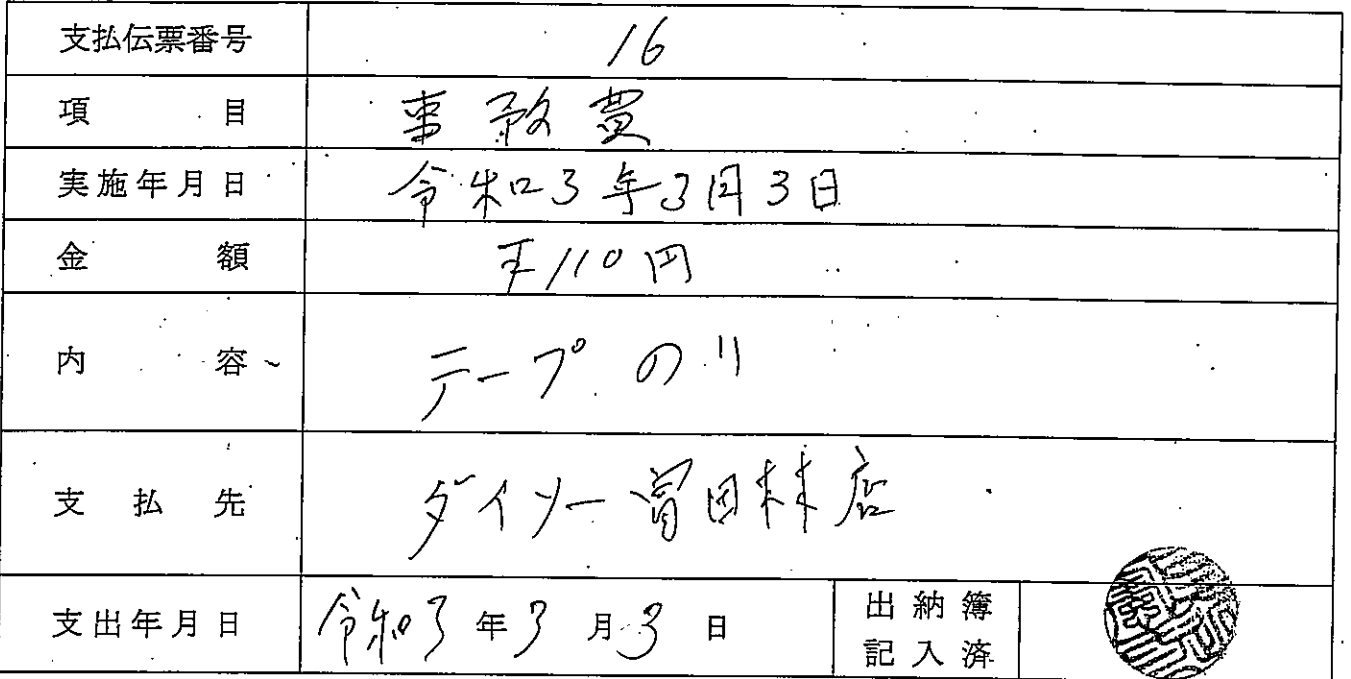 支払伝票番号 16
項目 事務費
実施年月日 令和3年3月3日
金額 ¥110円
内容 テープのり
支払先 ダイソー富田林店
支出年月日 令和3年3月3日 出納簿
記入済